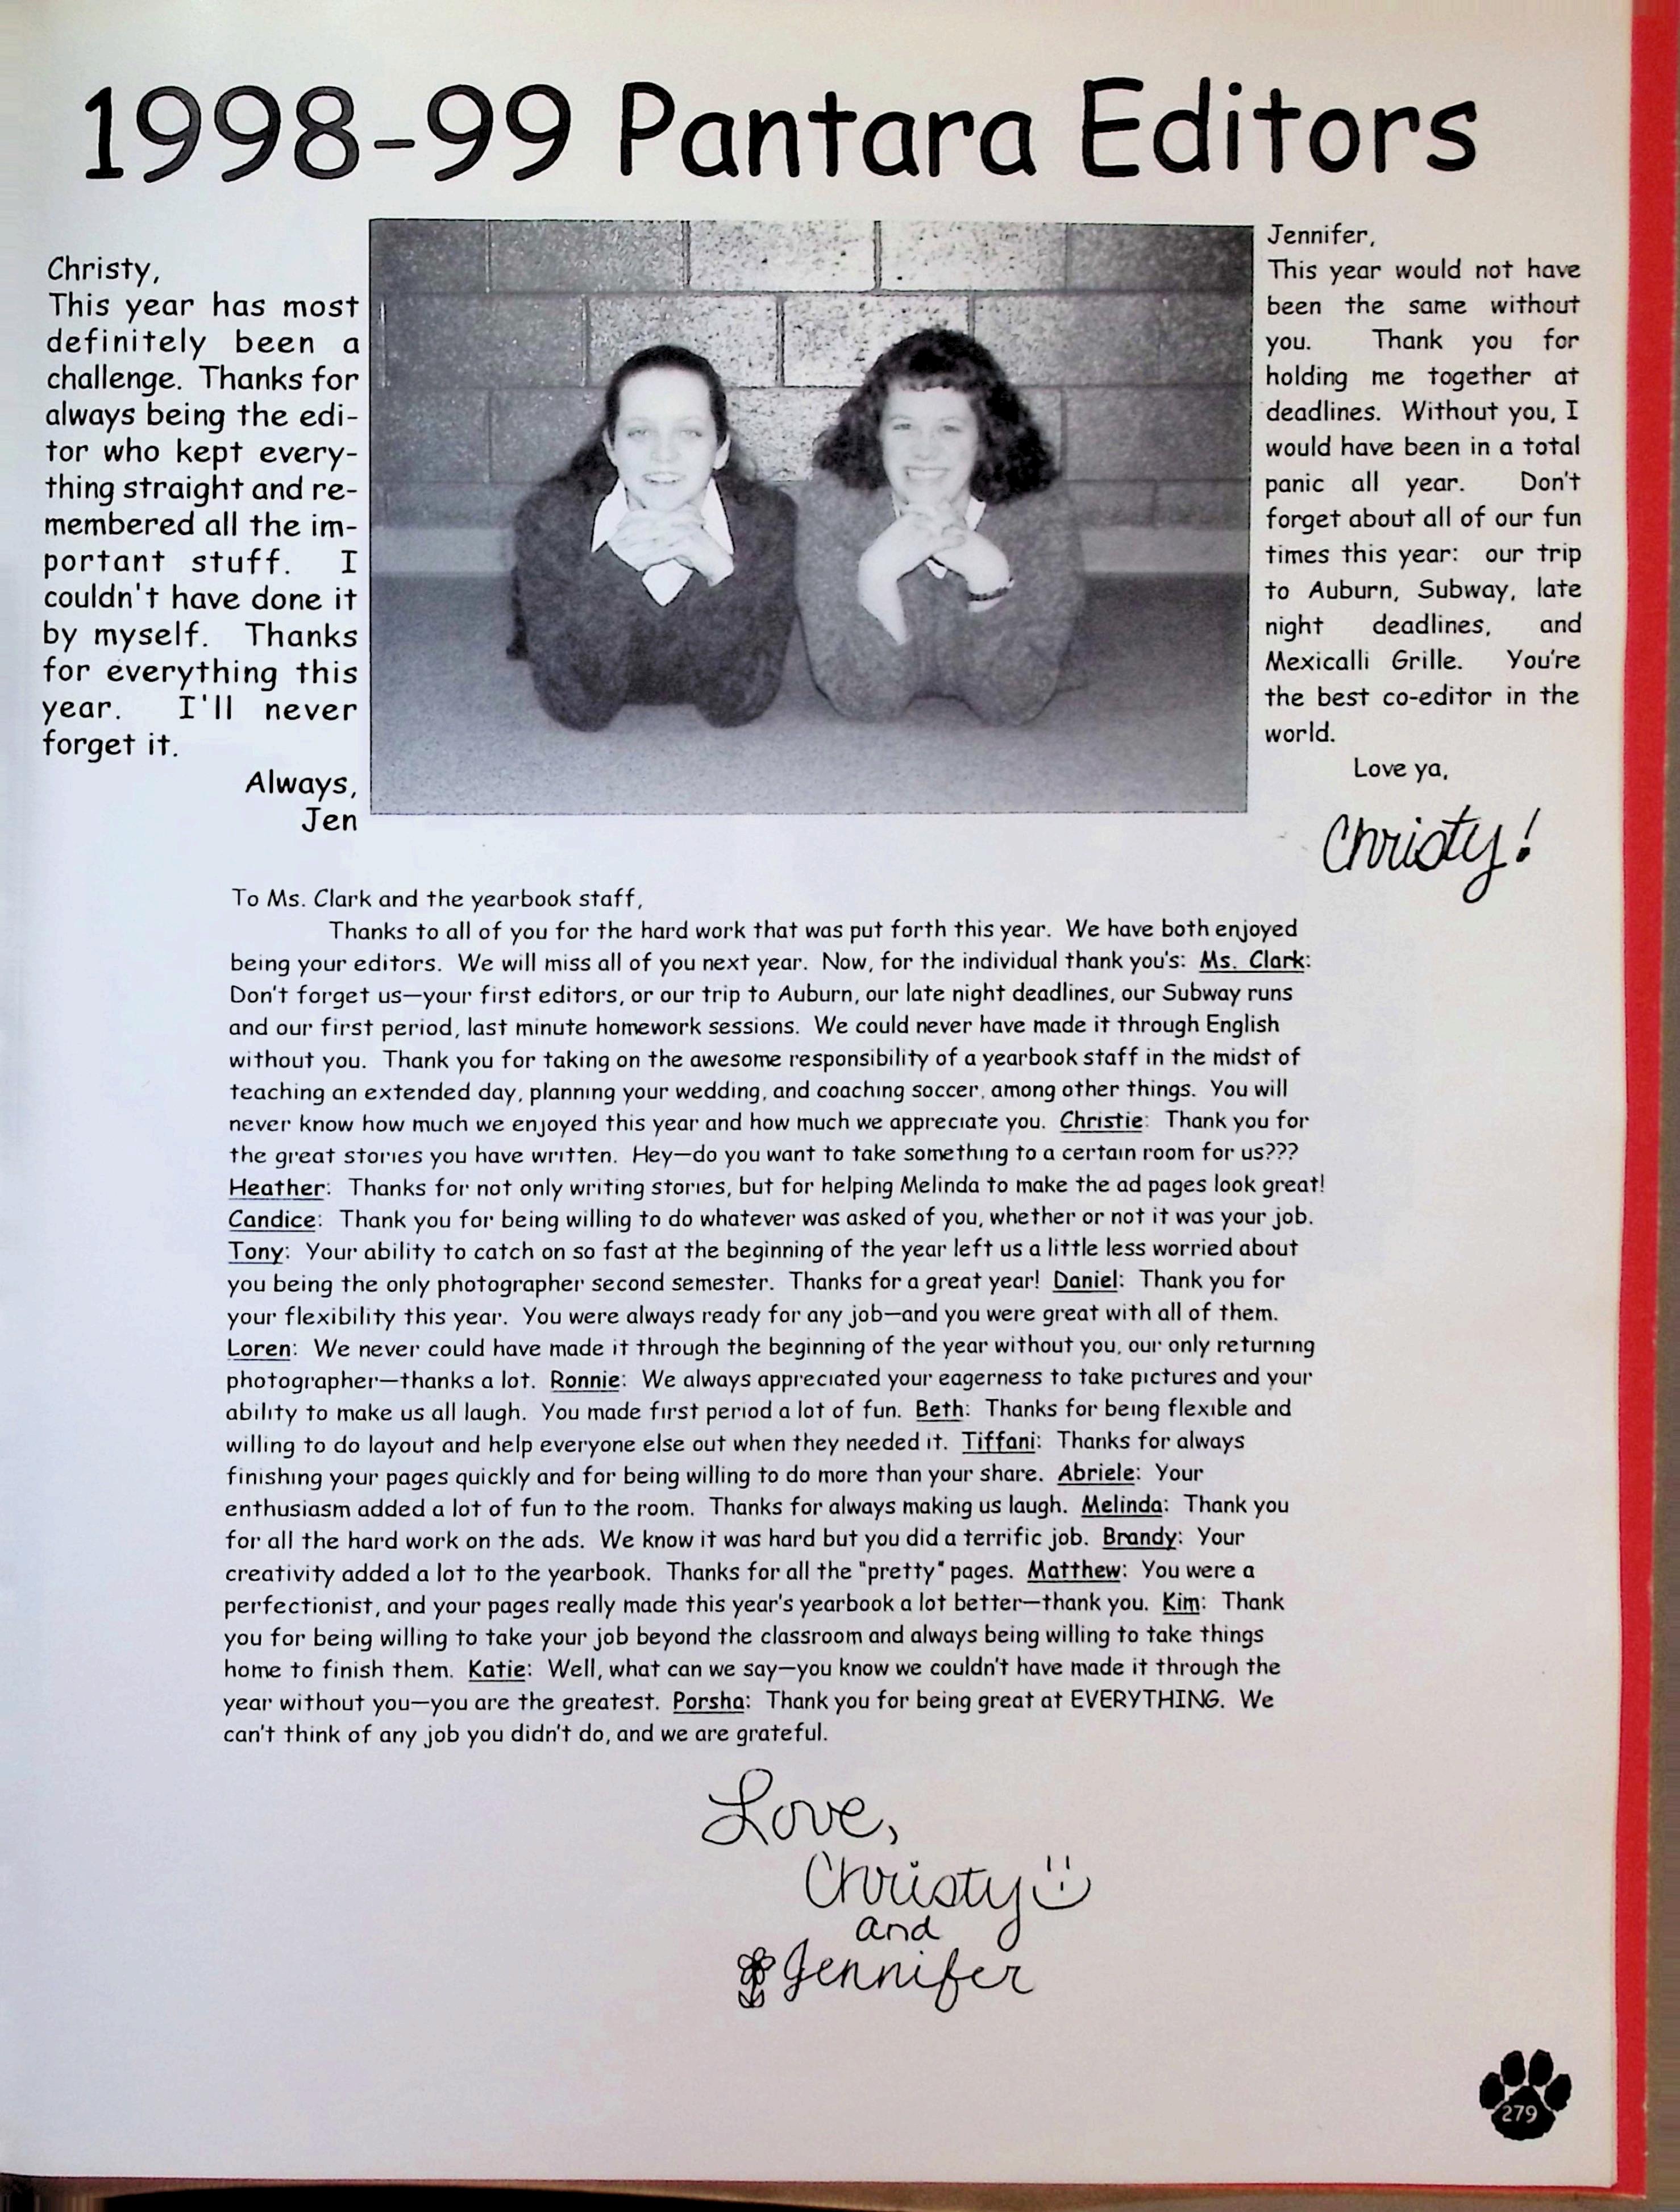 1998-99 Pantara Editors
Christy,
This year has most
definitely been a
challenge. Thanks for
always being the edi-
tor who kept every-
thing straight and re-
membered all the im-
portant stuff. I
couldn't have done it
by myself. Thanks
for everything this
year. I'll never
forget it.
Always,
Jen
Jennifer,
This year would not have
been the same without
you. Thank you for
holding me together at
deadlines. Without you, I
would have been in a total
panic all year. Don't
forget about all of our fun
times this year: our trip
to Auburn, Subway, late
night deadlines, and
Mexicalli Grille. You're
the best co-editor in the
world.
Love ya,
Christy!
To Ms. Clark and the yearbook staff,
Thanks to all of you for the hard work that was put forth this year. We have both enjoyed
being your editors. We will miss all of you next year. Now, for the individual thank you's: Ms. Clark:
Don't forget us—your first editors, or our trip to Auburn, our late night deadlines, our Subway runs
and our first period, last minute homework sessions. We could never have made it through English
without you. Thank you for taking on the awesome responsibility of a yearbook staff in the midst of
teaching an extended day, planning your wedding, and coaching soccer, among other things. You will
never know how much we enjoyed this year and how much we appreciate you. Christie: Thank you for
the great stories you have written. Hey—do you want to take something to a certain room for us???
Heather: Thanks for not only writing stories, but for helping Melinda to make the ad pages look great!
Candice: Thank you for being willing to do whatever was asked of you, whether or not it was your job.
Tony: Your ability to catch on so fast at the beginning of the year left us a little less worried about
you being the only photographer second semester. Thanks for a great year! Daniel: Thank you for
your flexibility this year. You were always ready for any job—and you were great with all of them.
Loren: We never could have made it through the beginning of the year without you, our only returning
photographer—thanks a lot. Ronnie: We always appreciated your eagerness to take pictures and your
ability to make us all laugh. You made first period a lot of fun. Beth: Thanks for being flexible and
willing to do layout and help everyone else out when they needed it. Tiffani: Thanks for always
finishing your pages quickly and for being willing to do more than your share. Abriele: Your
enthusiasm added a lot of fun to the room. Thanks for always making us laugh. Melinda: Thank you
for all the hard work on the ads. We know it was hard but you did a terrific job. Brandy: Your
creativity added a lot to the yearbook. Thanks for all the "pretty" pages. Matthew: You were a
perfectionist, and your pages really made this year's yearbook a lot better—thank you. Kim: Thank
you for being willing to take your job beyond the classroom and always being willing to take things
home to finish them. Katie: Well, what can we say—you know we couldn't have made it through the
year without you—you are the greatest. Porsha: Thank you for being great at EVERYTHING. We
can't think of any job you didn't do, and we are grateful.
Love,
Christy
and
Jennifer
279